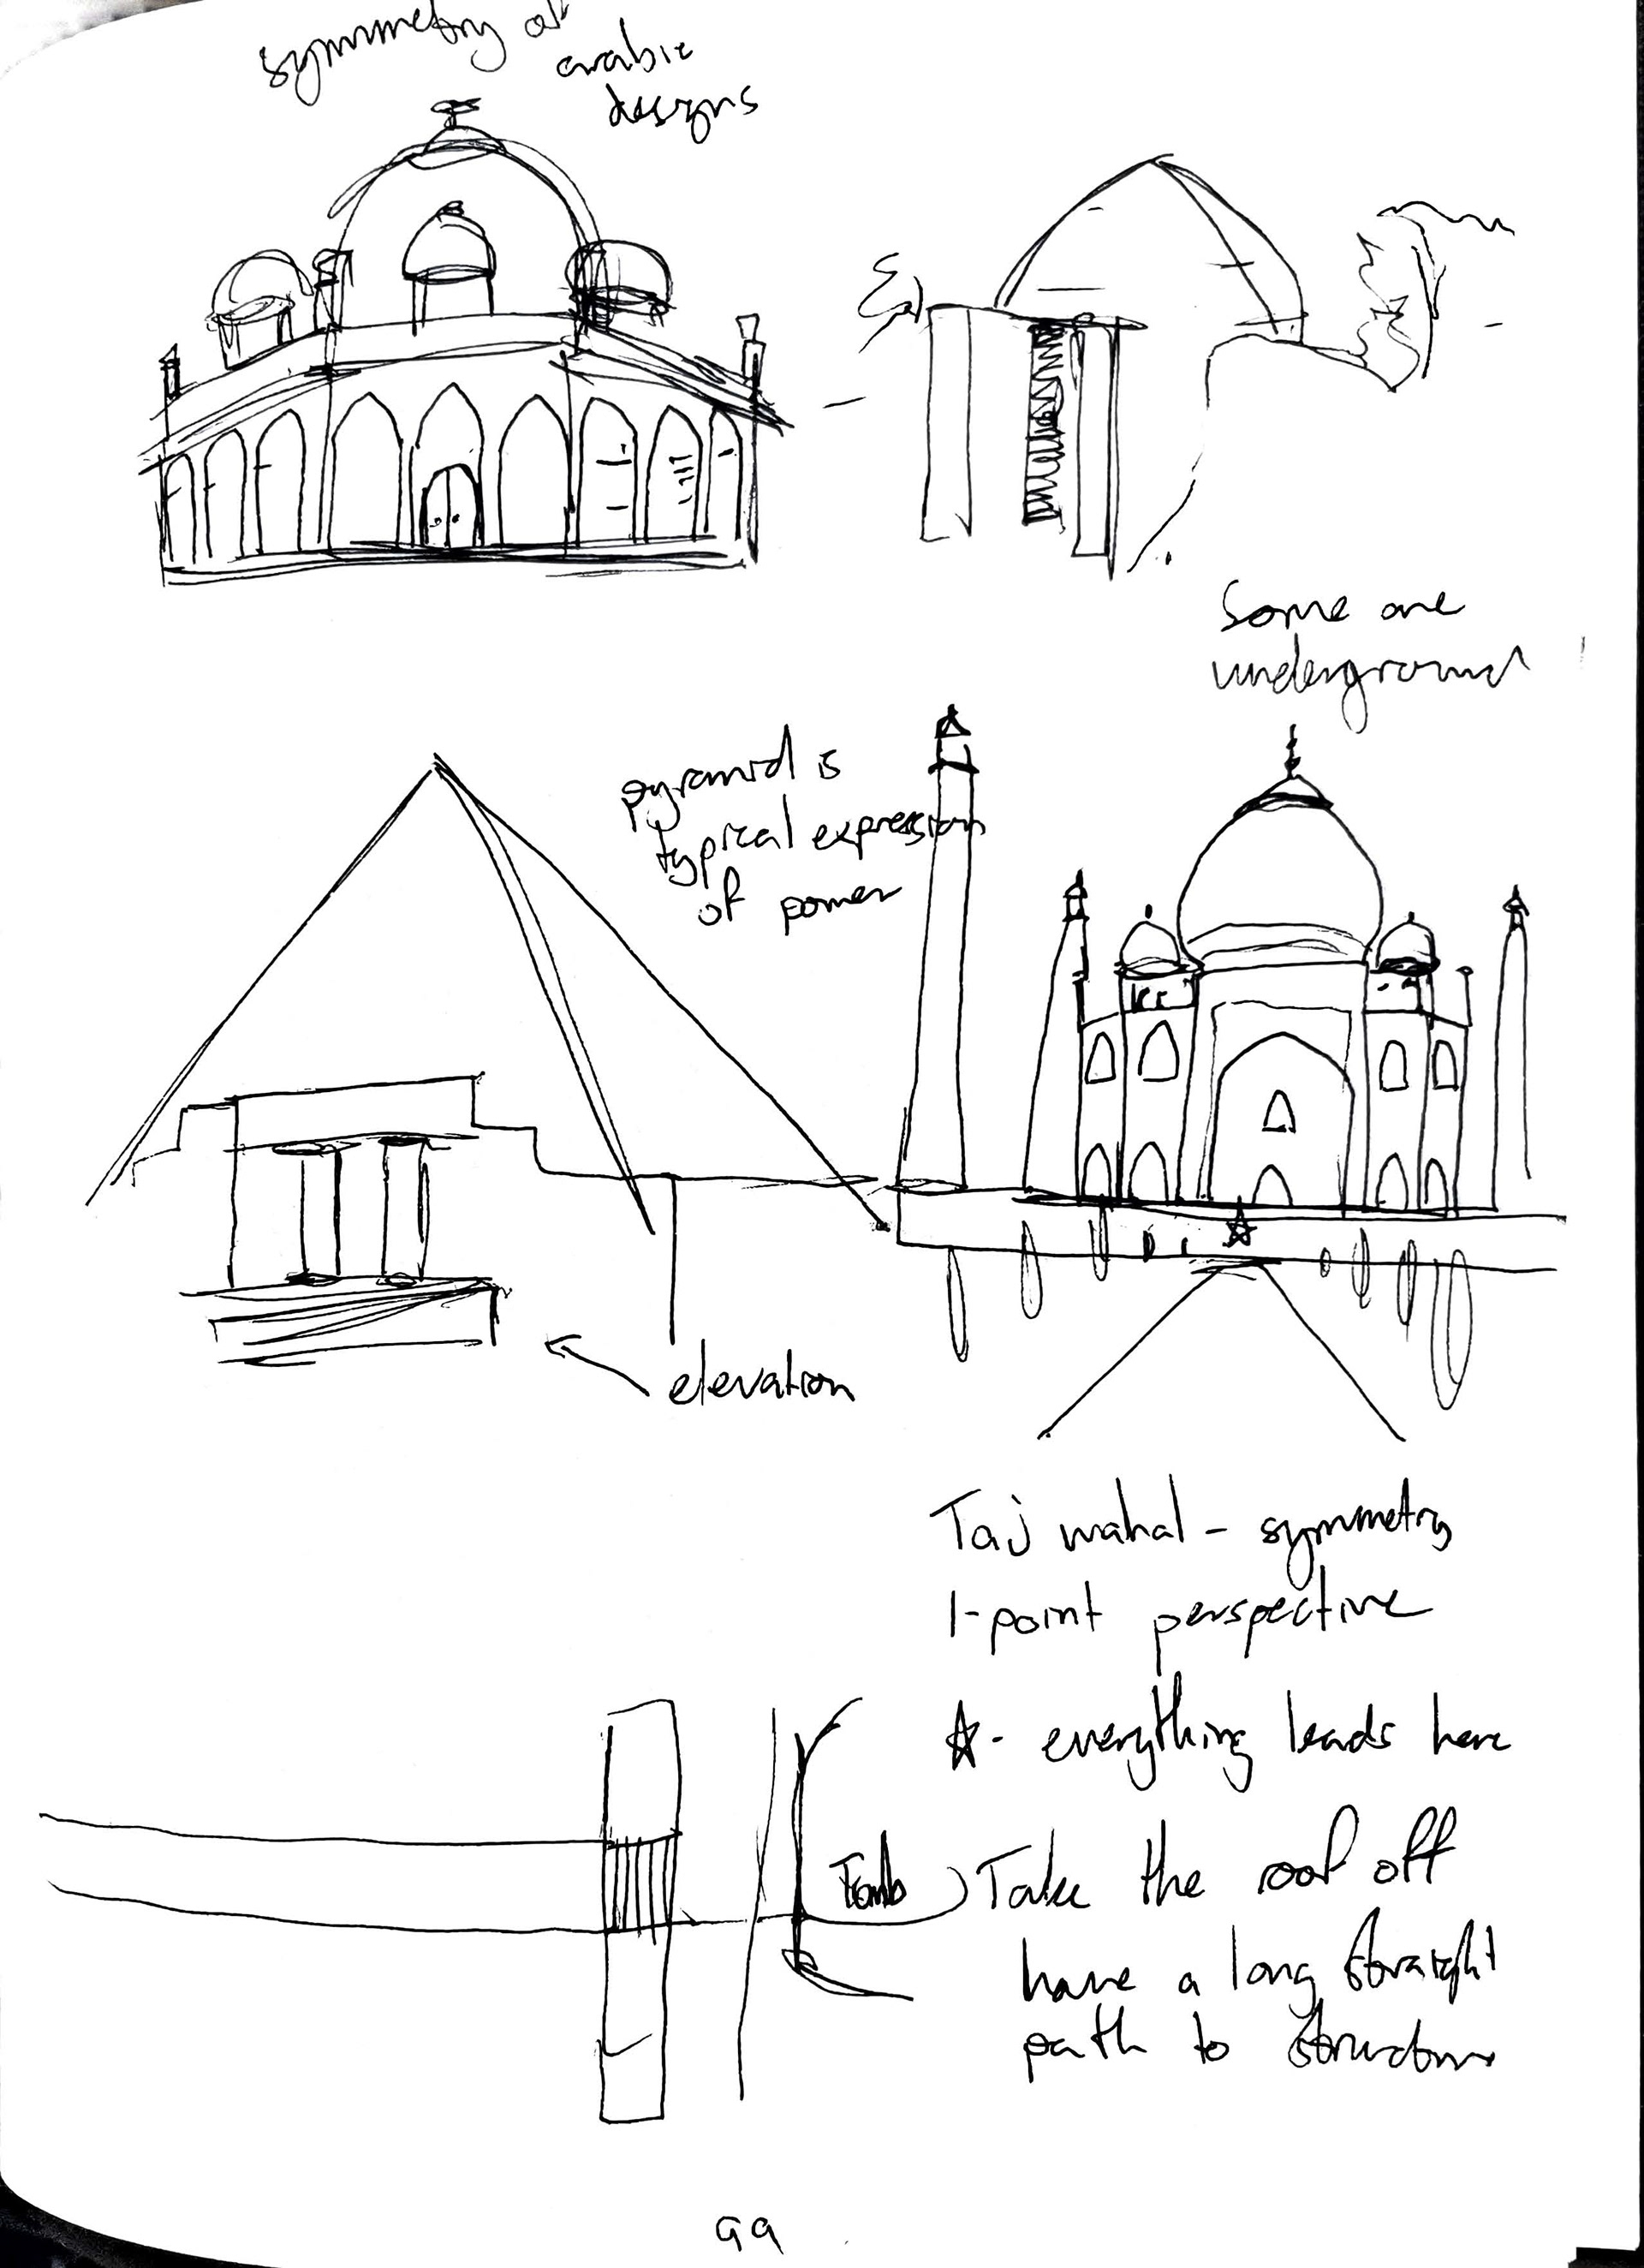 symmetry of
arabic
designs
Some are
underground
pyramid is
typical expression
of power
elevation
Taj mahal - symmetry
1-point perspective
☆ - everything leads here
Tomb
Take the roof off
have a long straight
path to structure
99